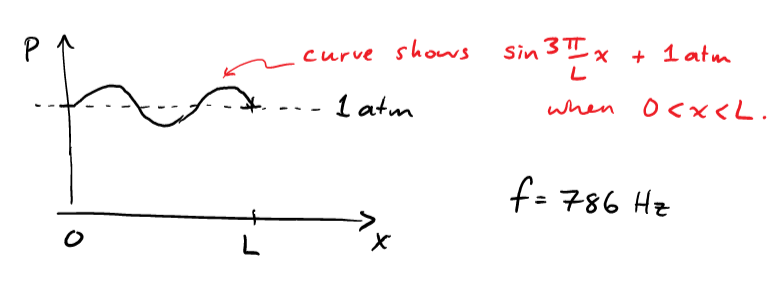 P
curve shows sin 3π/L x + 1 atm
when 0 < x < L.
1 atm
f = 786 Hz
0
L
x